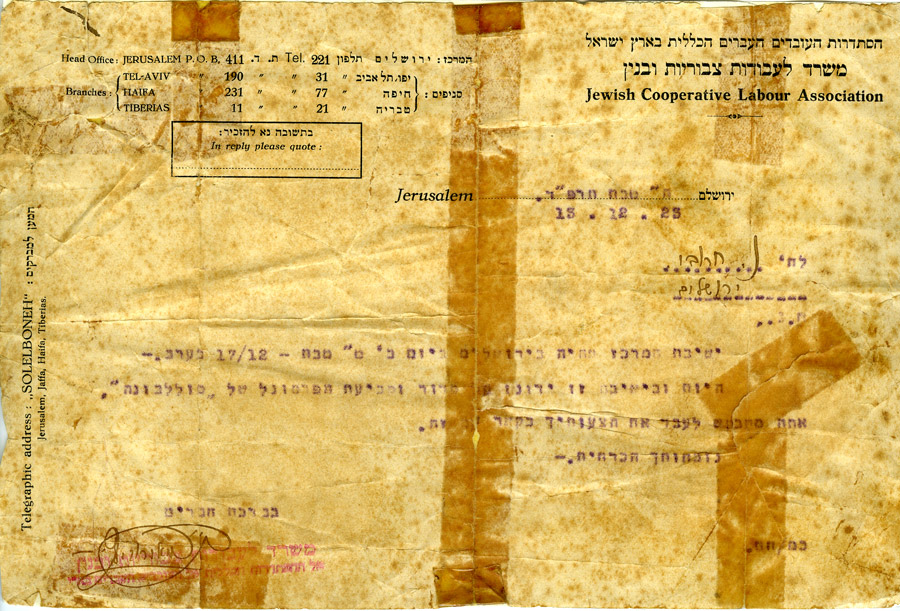 הסתדרות העובדים העברים הכללית בארץ ישראל
משרד לעבודות צבוריות ובנין
Jewish Cooperative Labour Association
המרכז: ירושלים תלפון 221 .Tel ת. ד. 411 Head Office: JERUSALEM P. O. B.
סניפים: יפו,תל אביב " 31 " " 190 " TEL-AVIV
חיפה " 77 " " 231 " HAIFA Branches:
טבריה " 21 " " 11 " TIBERIAS
בתשובה נא להזכיר:
In reply please quote:
Jerusalem ח" טבת תרפ"ד. ירושלים
13 . 12 . 23
לח'
ירושלים
ח.נ.,
ישיבת המרכז תהיה בירושלים ביום ב' ט" טבת – 17/12 בערב.–
היום ובישיבה זו ידונו סדור וקביעת הפרסונל של "סוללבונה".
אתה מתבקש לעבד את הצעותיך בקשר
נוכחותך הכרחית.–
בברכת חברים
משרד
Telegraphic address: „SOLELBONEH" : המען למברקים
Jerusalem, Jaffa, Haifa, Tiberias.